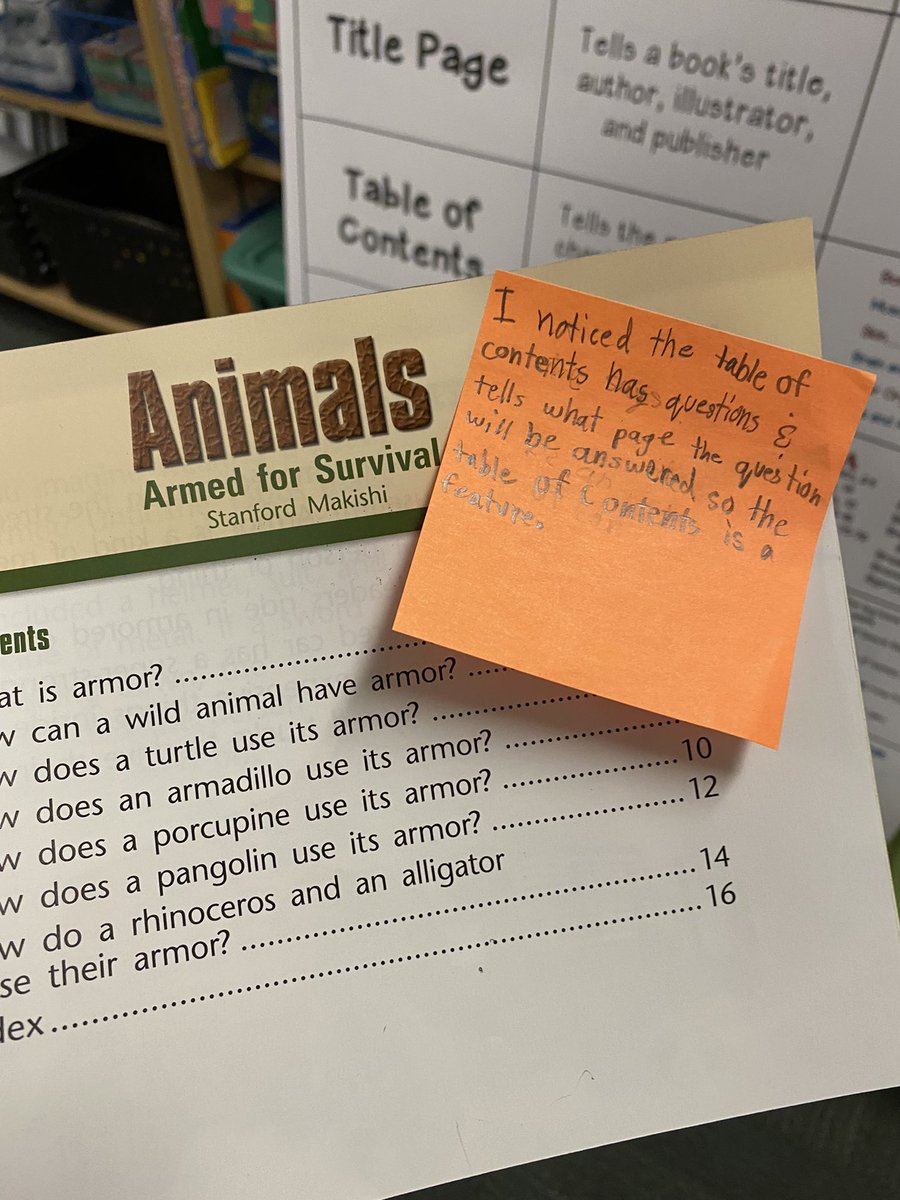 Title Page
Tells a book's title,
author, illustrator,
and publisher
Table of
Contents
Tells the
Animals
Armed for Survival
Stanford Makishi
I noticed the table of
contents has questions &
tells what page the question
will be answered so the
table of Contents is a
feature.
ents
at is armor?
w can a wild animal have armor?
w does a turtle use its armor?
w does an armadillo use its armor? 10
w does a porcupine use its armor? 12
w does a pangolin use its armor?
w do a rhinoceros and an alligator
se their armor? 14
dex 16